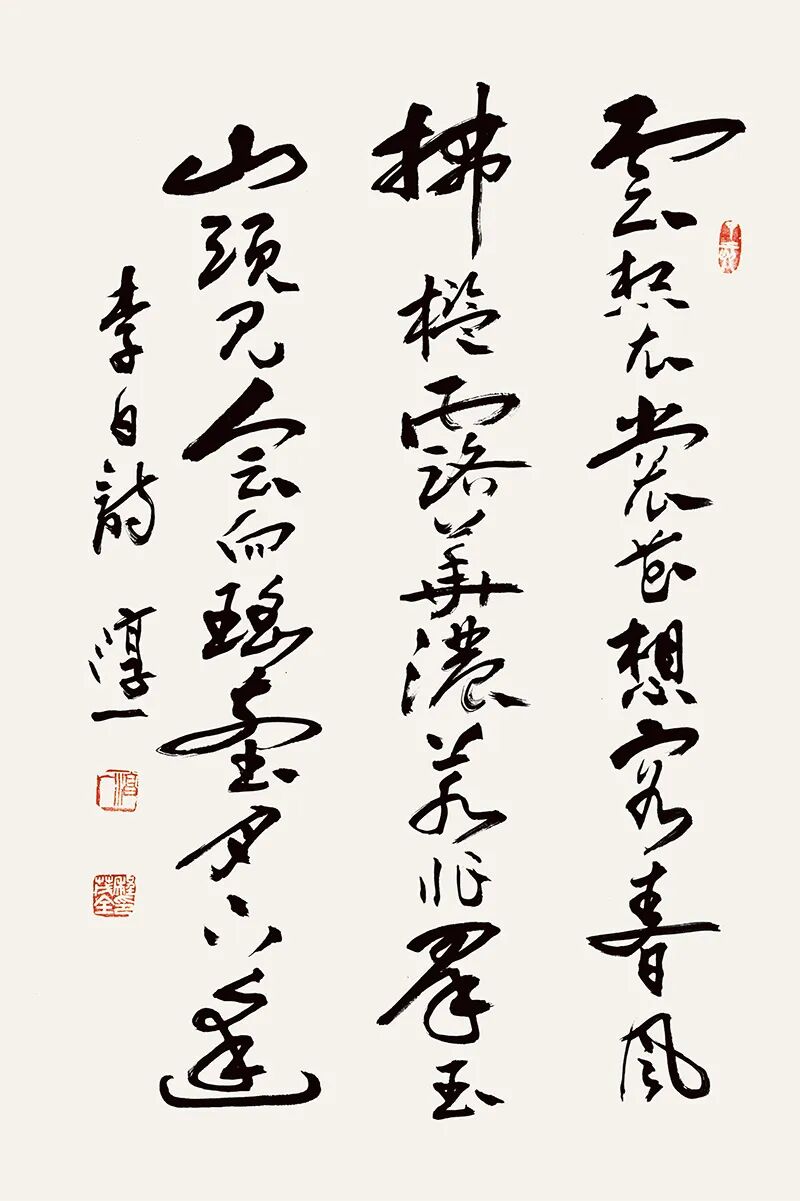 雲想衣裳花想容春風
拂檻露華濃若非群玉
山頭見會向瑤臺月下逢
李白詩 淳一